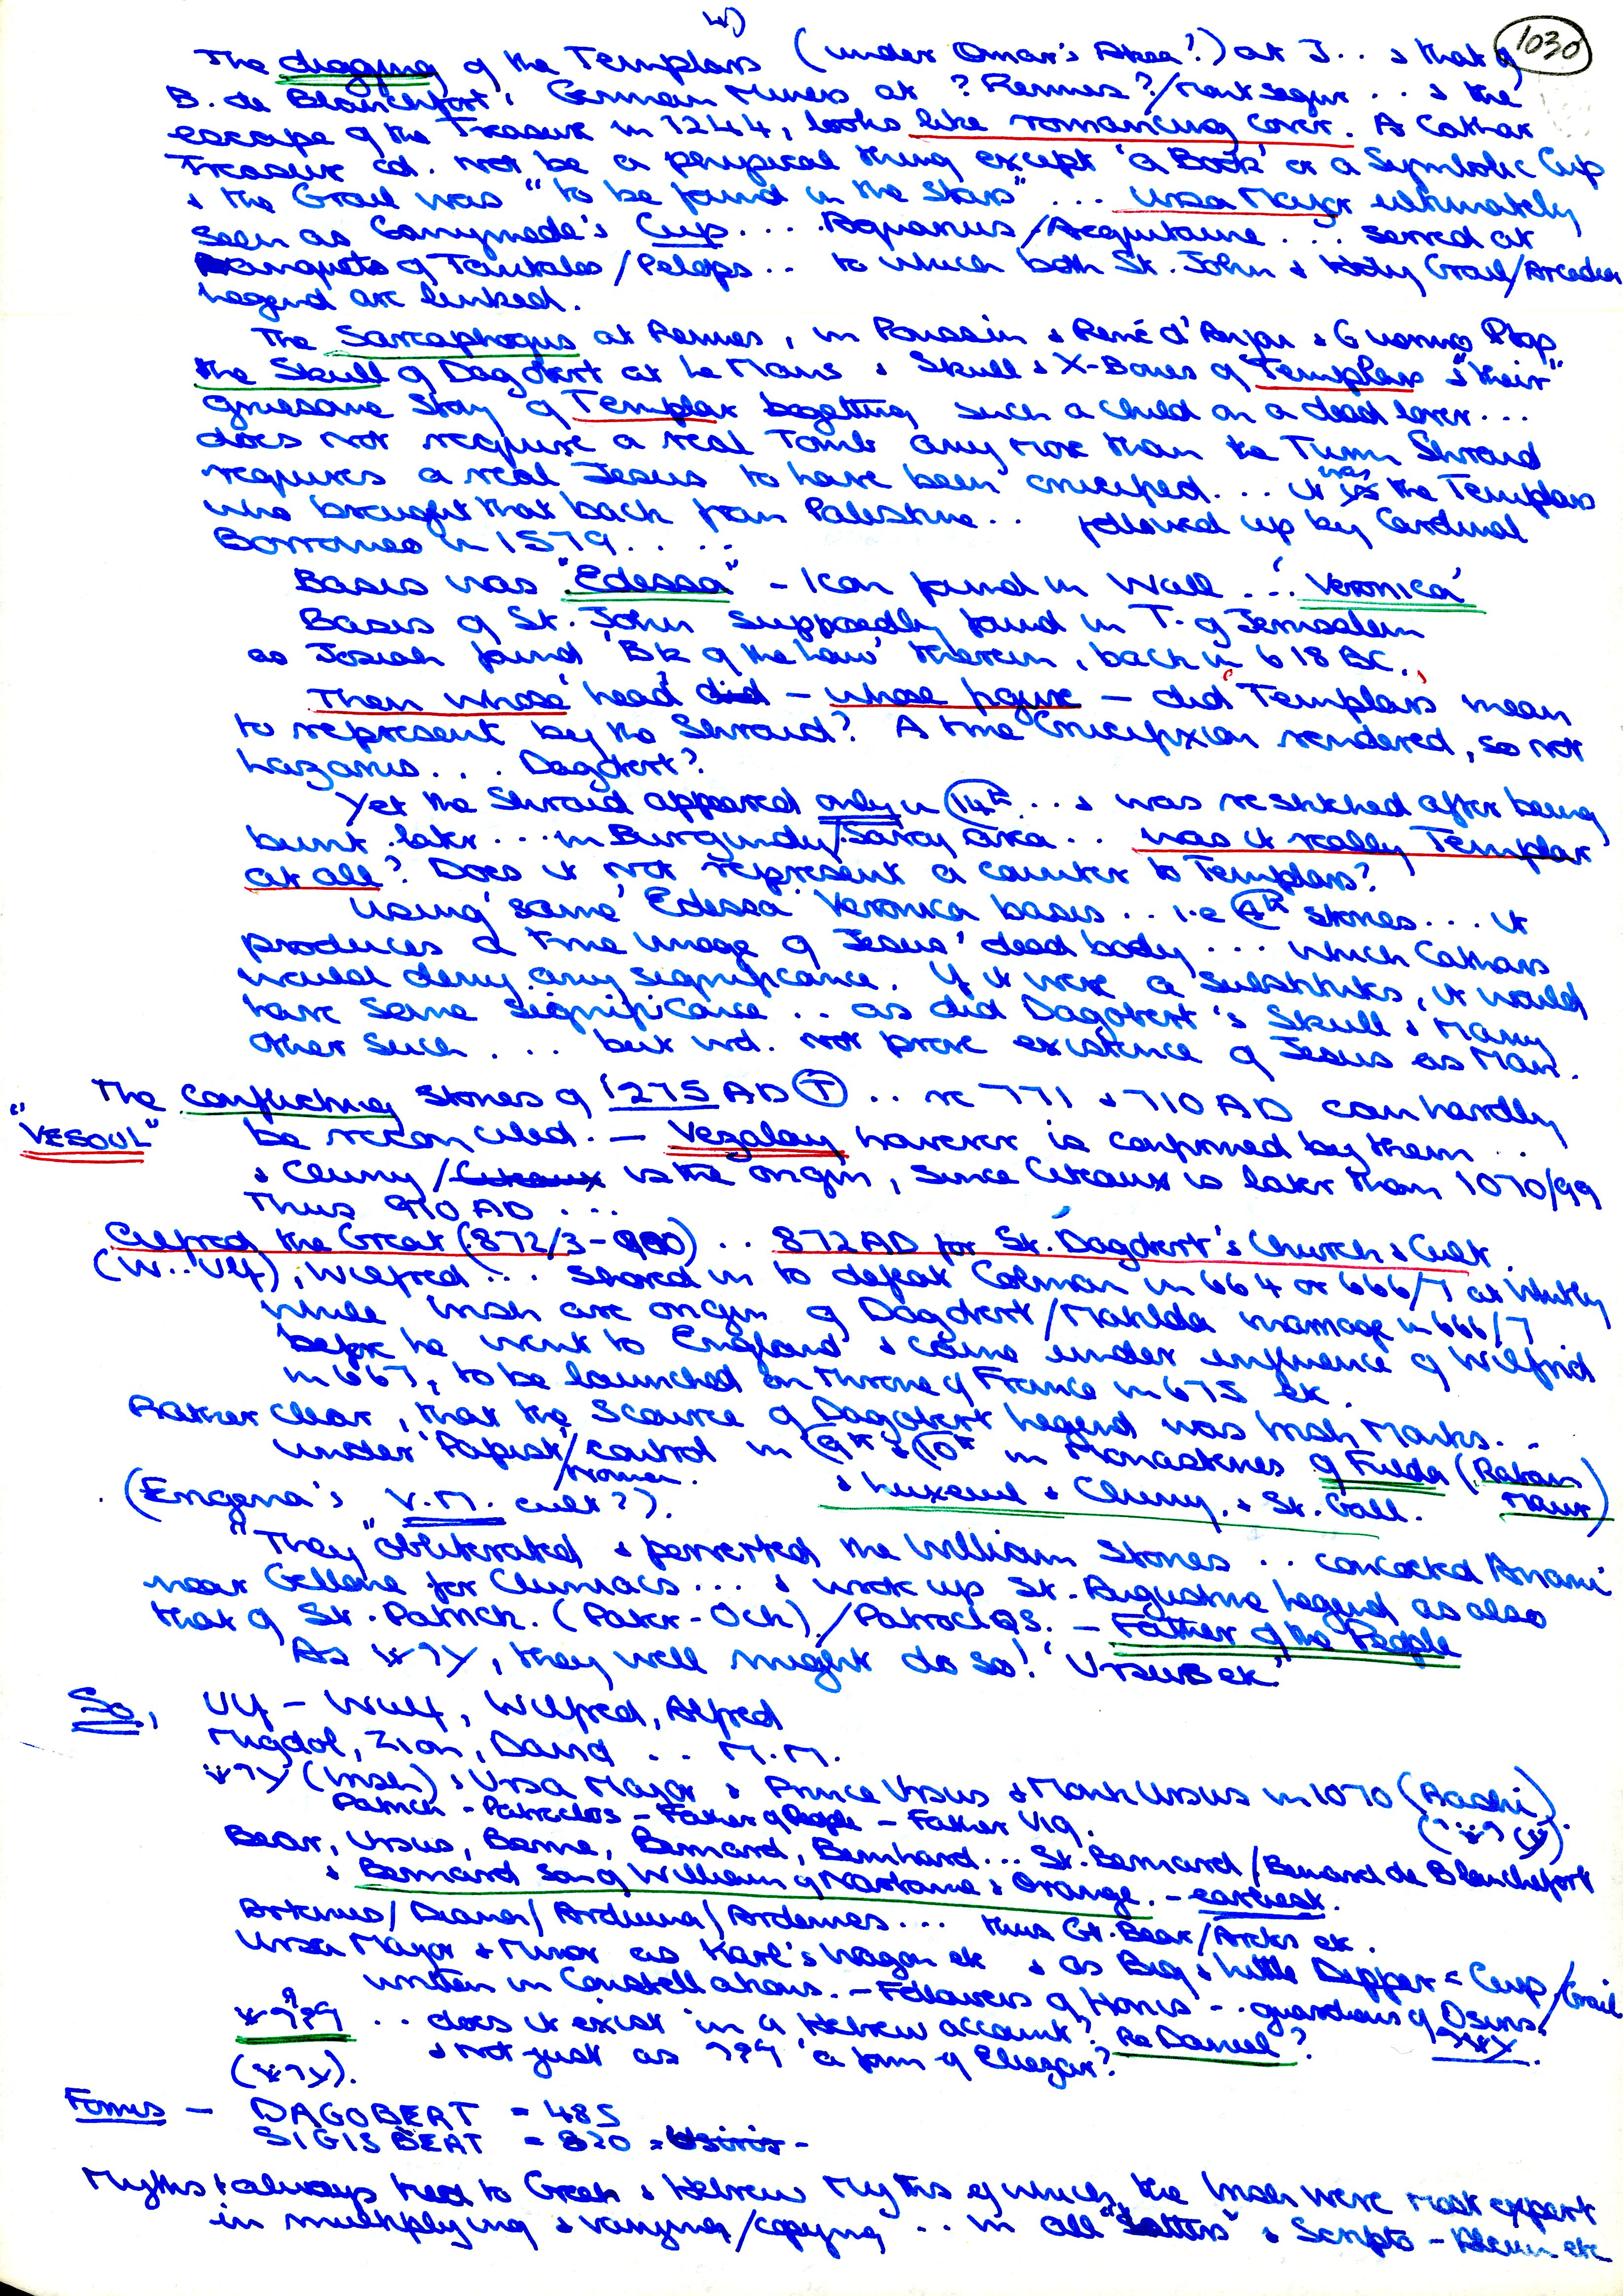 4)
1030
The digging of the Templars (under Omar's Area?) at J... & that of
B. de Blanchfort, German Miners at ? Rennes?/Mont segur ... & the
escape of the Treasure in 1244, looks like romancing cover. A Cathar
Treasure cd. not be a physical thing except 'a Book' or a Symbolic Cup
& the Grail was "to be found in the Stars" ... Ursa Major ultimately
seen as Ganymede's Cup .... Aquarius/Acquitaine ... served at
Banquets of Tantalos/Pelops .. to which both St. John & Grail/Arcadia
legend are linked.
The Sarcophagus at Rennes, in Poussin & René d'Anjou &
the Skull of Dagobert at Le Mans & Skull & X-Bones of Templars & "their"
gruesome Story of Templar begetting such a child on a dead lover...
does not require a real Tomb any more than the Turin Shroud
requires a real Jesus to have been crucified... it was the Templars
who brought that back from Palestine.. followed up by Cardinal
Borromeo in 1579....
Basis was "Edessa" - Icon found in Wall ... 'Veronica'
Basis of St. John supposedly found in T. of Jerusalem
as Josiah found 'Bk of the Law' therein, back in 618 BC.
Then whose 'head' did - whose figure - did 'Templars' mean
to represent by the Shroud? A true Crucifixion rendered, so not
Lazarus... Dagobert?
Yet the Shroud appeared only in 14th ... & was restitched after being
burnt later ... in Burgundy/Savoy area .. was it really Templar
at all? Does it not represent a counter to Templars?
Using 'same' Edessa Veronica basis .. i.e. 4th stories... it
produces a true image of Jesus' dead body ... which Cathars
would deny any significance. If it were a substitute's, it would
have some significance .. as did Dagobert's Skull & Many
other such ... but wd. not prove existence of Jesus as Man.
The Conflicting Stories of 1275 AD (T) .. re 771 & 710 AD can hardly
"VESOUL" be reconciled. - Vezalay however is confirmed by them ..
& Cluny/Citeaux is the origin, since Citeaux is later than 1070/99
Thus 910 AD ...
Alfred the Great (872/3-900) .. 872 AD for St. Dagobert's Church & Cult.
(W..Ulf), Wilfred ... shared in to defeat Colman in 664 or 666/7 at Whitby
while Irish are origin of Dagobert/Matilda marriage in 666/7
before he went to England & came under influence of Wilfrid
in 667, to be launched on Throne of France in 675 etc.
Rather clear, that the Source of Dagobert legend was Irish Monks...
under 'Papist'/Roman control in 9th & 10th in Monasteries of Fulda (Raban Maur)
(Erigena's V.M. cult??). & Luxeuil & Cluny, & St. Gall.
"They" obliterated & perverted the William Stories .. concocted
near Gellone for Cluniacs... & work up St. Augustine legend as also
that of St. Patrick. (Pater-Och)/Patroclos. - Father of the People
As שרץ, they well might do so! 'Ursubek'
So, Ulf - Wulf, Wilfred, Alfred
Migdol, Zion, David .. M.M.
(Irish) & Ursa Major & Prince Ursus & Monk Ursus in 1070 (Rashi).
Patrick - Patroclos - Father of People - Father Vig.
Bear, Ursus, Berne, Bernard, Bernhard... St. Bernard/Bernard de Blanchefort
& Bernard Son of William of Narbonne & Orange. - earliest.
Artemis/Diana/Arduina/Ardennes... thus Gt. Bear/Arctos etc.
Ursa Major & Minor as Karl's Wagon etc & as Big & Little Dipper = Cup/Grail
written in Constellations. - Followers of Horus .. guardians of Osiris.
.. does it exist in a Hebrew account? Re Daniel?
& not just as 'a form of Eliezar?'
Forms - DAGOBERT = 485
SIGISBERT = 820 = Osiris -
Myths & always tied to Greek & Hebrew Myths of which the Irish were most expert
in multiplying & varying/copying .. in all "Letters" & Scripts - Alcuin etc